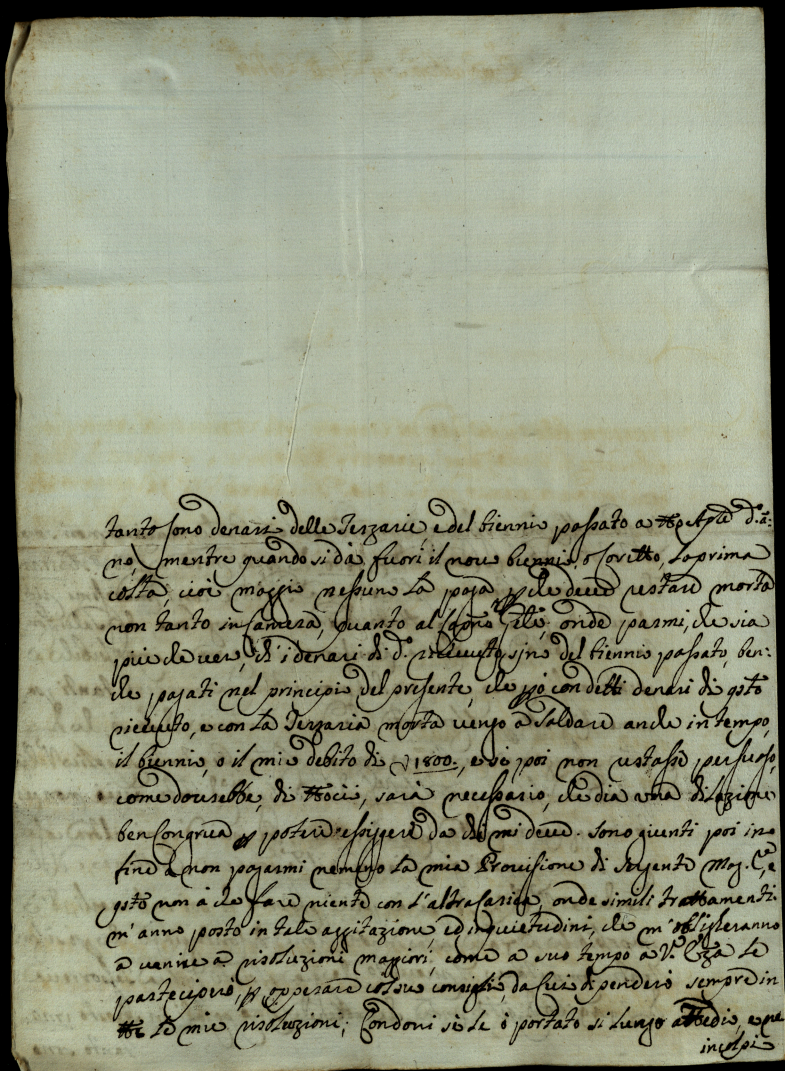 tanto sono denari delle Terzarie, e del biennio passato a tto Aple d.° a:
no, mentre quando si dà fuori il novo biennio, o Coretto, la prima
cosa, cioè maggio nessuno la paga, p che deve restare morta
non tanto in Camera, quanto al Sagro onde parmi, che sia
più che vero, ch'i denari di d.° ricevuto sjno del biennio passato, ben:
che pagati nel principio del presente, che pò con detti denari di qsto
ricevuto, e con la Terzaria morta vengo a saldare anche in tempo,
il biennio, o il mio debito di 1800., e se poi non restasse persuaso,
come dovrebbe, di ttociò, sarà necessario, che dia una dilazione
ben Congrua p potere essiggere da chi mi deve. sono giunti poi in
fine à non pagarmi nemeno la mia Provisione di Sergente Mag.e, e
qsto non à che fare niente con l'altra Carica, onde simili trattamenti
m'anno posto in tale aggitazione, ed inquietudini, che m'obligheranno
a venire a risoluzioni maggiori, come a suo tempo a V.a Ecza le
parteciperò, p opperare col suo consiglio, da Cui dipenderò sempre in
tte le mie risoluzioni; Condoni se le ò portato si lungo attedio, e ne
incolpi